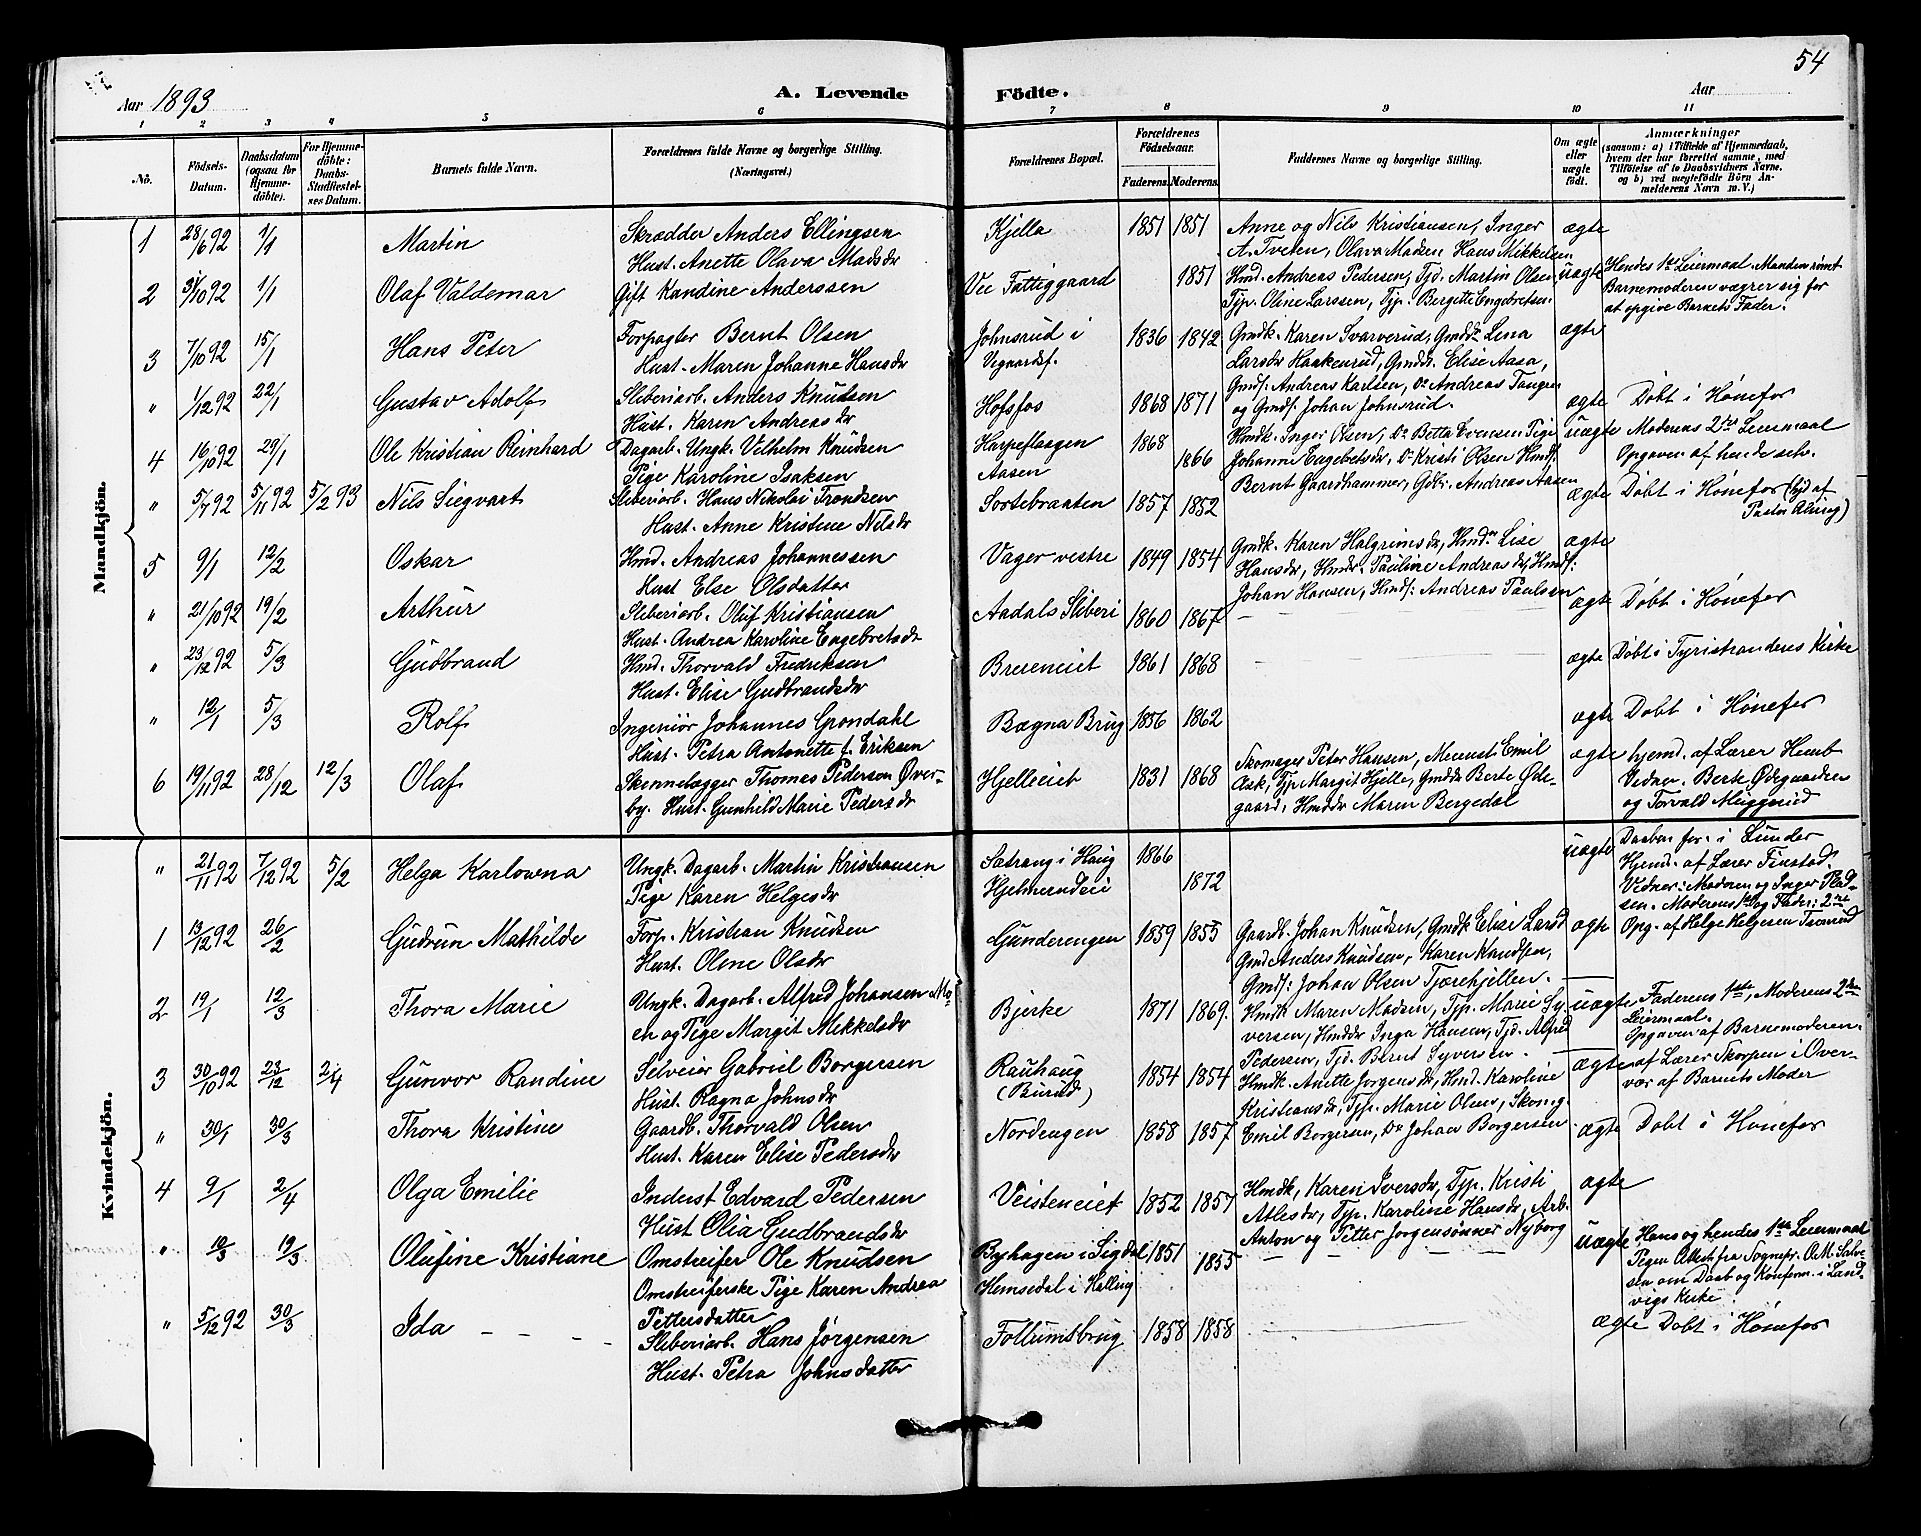 54
Aar 1893
A. Levende Födte.
Aar
1 2 3 4 5 6 7 8 9 10 11
No.
Födsels-Datum.
Daabsdatum (ogsaa for Hjemmedöbte).
For Hjemmedöbte: Daabs-Stadfæstelses Datum.
Barnets fulde Navn.
Forældrenes fulde Navne og borgerlige Stilling. (Næringsvei.)
Forældrenes Bopæl.
Forældrenes Födselsaar.
Faderens. Moderens.
Faddernes Navne og borgerlige Stilling.
Om ægte eller uægte födt.
Anmærkninger (saasom: a) i Tilfælde af Hjemmedaab, hvem der har forrettet samme, med Tilföielse af to Daabsvidners Navne, og b) ved uægtefödte Börn Anmelderens Navn m. V.)
Mandkjön.
1 28/6 92 1/1 Martin Skrædder Anders Ellingsen Kjella 1851 1851 Anne og Nils Kristiansen, Inger ægte
Hust. Anette Olava Madsdr A. Tveten, Olava Madsen Hans Mikkelsen
2 31/10 92 1/1 Olaf Valdemar Gift Kandine Anderssen Vee Fattiggaard 1851 Hmd. Andreas Pedersen, Tjd. Martin Olsen, uægte Hendes 1ste Leiermaal. Manden rømt
Tjp. Oline Larssen, Tjp. Bergitte Engebretsen. Barnemoderen vægrer sig for
at opgive Barnets Fader.
3 7/10 92 15/1 Hans Peter Forpagter Bernt Olsen Johnsrud i 1836 1842 Gmdk. Karen Svarverud, Gmdd. Lena ægte
Hust. Maren Johanne Hansdr Vegaardsf. Larsdr Haakenrud, Gmddr. Elise Aasa,
" 1/12 92 22/1 Gustav Adolf Sliberiarb. Anders Knudsen Hofsfos 1868 1871 Gmds. Andreas Karlsen, Do Andreas Tangen ægte Døbt i Hønefos
Hust. Karen Andreasdr og Gmds. Johan Johnsrud.
4 16/10 92 29/1 Ole Kristian Reinhard Dagarb. Ungk. Vilhelm Knudsen Harpeflaagen 1868 Hmdk. Inger Olsen, Do Betta Evensen Pige uægte Moderens 2det Leiermaal
Pige Karoline Isaksen Aasen 1866 Johanne Engebretsdr, Do Kristi Olsen Hmds. Opgaven af hende selv.
Bernt Gaardhammer, Gdbr. Andreas Aasen
" 5/7 92 5/11 92 5/2 93 Nils Siegvart Sliberiarb. Hans Nikolai Trondsen Sortebraaten 1857 1852 ægte Døbt i Hønefos (hjd af
Hust. Anne Kristine Nilsdr Pastor Alsing)
5 9/1 12/2 Oskar Hmd. Andreas Johannessen Vager vestre 1849 1854 Gmdk. Karen Halgrimsdr, Hmdr Lise ægte
Hust Else Olsdatter Hansdr, Hmdr. Pauline Andreasdr, Hmds:
Johan Hansen, Hmds: Andreas Paulsen
" 21/10 92 19/2 Arthur Sliberiarb. Oluf Kristiansen Aadals Sliberi 1860 1867 — ægte Døbt i Hønefos
Hust. Andrea Karoline Engebretsdr
" 23/12 92 5/3 Gudbrand Hmd. Thorvald Fredriksen Breieneiet 1861 1868 — — ægte Døbt i Tyristrandens Kirke
Hust. Elise Gudbrandsdr
" 12/1 5/3 Rolf Ingeniør Johannes Grondahl Bægna Brug 1856 1862 — — ægte Døbt i Hønefos
Hust. Petra Antonette f. Eriksen
6 19/11 92 28/12 12/3 Olaf Skinnelægger Thomas Pederson Øver- Hjelleiet 1831 1868 Skomager Peter Hansen, Meensti Emil ægte hjemd. af Lærer Hemb
by. Hust. Gunhild Marie Pedersdr Ask, Tjp. Margit Hjelle, Gmddr Berte Øde- Vidner. Berte Ødegaarden
gaard, Hmddr Maren Bergedal og Torvald Muggerud
Kvindekjön.
" 21/11 92 7/12 92 5/2 Helga Karlowna Ungk. Dagarb. Martin Kristiansen Sætrang i Haug 1866 uægte Daaben for. i Lunder
Pige Karen Helgesdr Hjelmerudeie 1872 Hjemd. af Lærer Finstad.
Vidner: Moderen og Inger Plad-
sen. Moderens 1ste og Fader: 2net
1 13/12 92 26/2 Gudrun Mathilde Forp. Kristian Knudsen Gunderengen 1859 1855 Gaardb. Johan Knudsen, Gmdk Elise Larsd ægte Opg. af Helge Helgesen Tromrud
Hust. Oline Olsdr Gmd Anders Knudsen, Karen Knudsen,
Gmds: Johan Olsen Tjærehjellen.
2 19/1 12/3 Thora Marie Ungk. Dagarb. Alfred Johansen Mo Bjerke 1871 1869. Hmdk Maren Madsen, Tjp. Marie Sy- uægte Faderens 1ste, Moderens 2den
en og Pige Margit Mikkelsdr versen, Hmddr Inga Hansen, Tjd. Alfred Leiermaal.
Pedersen, Tjd. Bernt Syversen. Opgaven af Barnemoderen.
3 30/10 92 23/12 2/4 Gunvor Randine Selveier Gabriel Borgersen Rauhaug 1854 1854 Hmdk. Anette Jorgensdr, Hmd. Karoline ægte af Lærer Skorpen i Over-
Hust. Ragna Johnsdr (Burud) Kristiansdr, Tjp. Marie Olsen, Skomg. vær af Barnets Moder
" 30/1 30/3 Thora Kristine Gaardb. Thorvald Olsen Nordengen 1858 1857 Emil Borgersen, Do Johan Borgersen ægte Døbt i Hønefos
Hust. Karen Elise Pedersdr
4 9/1 2/4 Olga Emilie Inderst Edvard Pedersen Veisteneiet 1852 1857 Hmdk, Karen Iversdr, Tjp. Kristi ægte
Hust Olia Gudbrandsdr Atlesdr, Tjp. Karoline Hansdr, Arb.
Anton og Petter Jorgensønner Nyborg
" 10/3 19/3 Olufine Kristiane Omstreifer Ole Knudsen Byhagen i Sigdal 1851 — uægte Hans og hendes 1ste Leiermaal
Omstreiferske Pige Karen Andrea Hemsedal i Halling 1855 Pigen Attest fra Sognepr. O.M. Salve-
Pettersdatter sen om Daab og Konfirm. i Land-
vigs Kirke
" 5/12 92 30/3 Ida — — — — Sliberiarb. Hans Jørgensen Follumsbrug 1858 1858 — ægte Døbt i Hønefos
Hust. Petra Johnsdatter